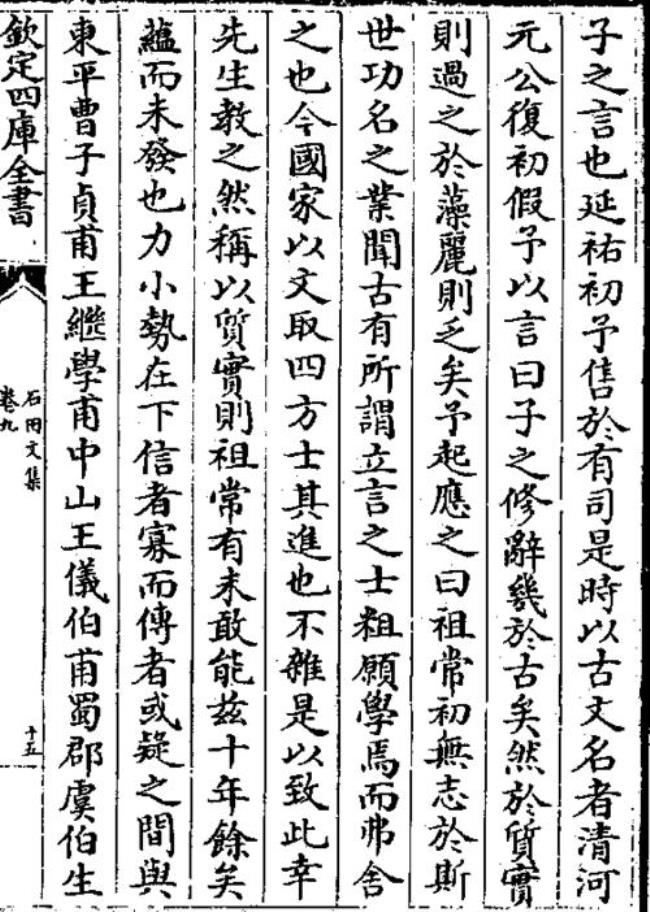 子之言也延祐初予售於有司是時以古文名者清河
元公復初假予以言曰子之修辭幾於古矣然於質實
則過之於藻麗則乏矣予起應之曰祖常初無志於斯
世功名之業聞古有所謂立言之士粗願學焉而弗舍
之也今國家以文取四方士其進也不雜是以致此幸
先生教之然稱以質實則祖常有未敢能茲十年餘矣
蘊而未發也力小勢在下信者寡而傳者或疑之間與
東平曹子貞甫王繼學甫中山王儀伯甫蜀郡虞伯生
欽定四庫全書
石田文集
卷九
十五